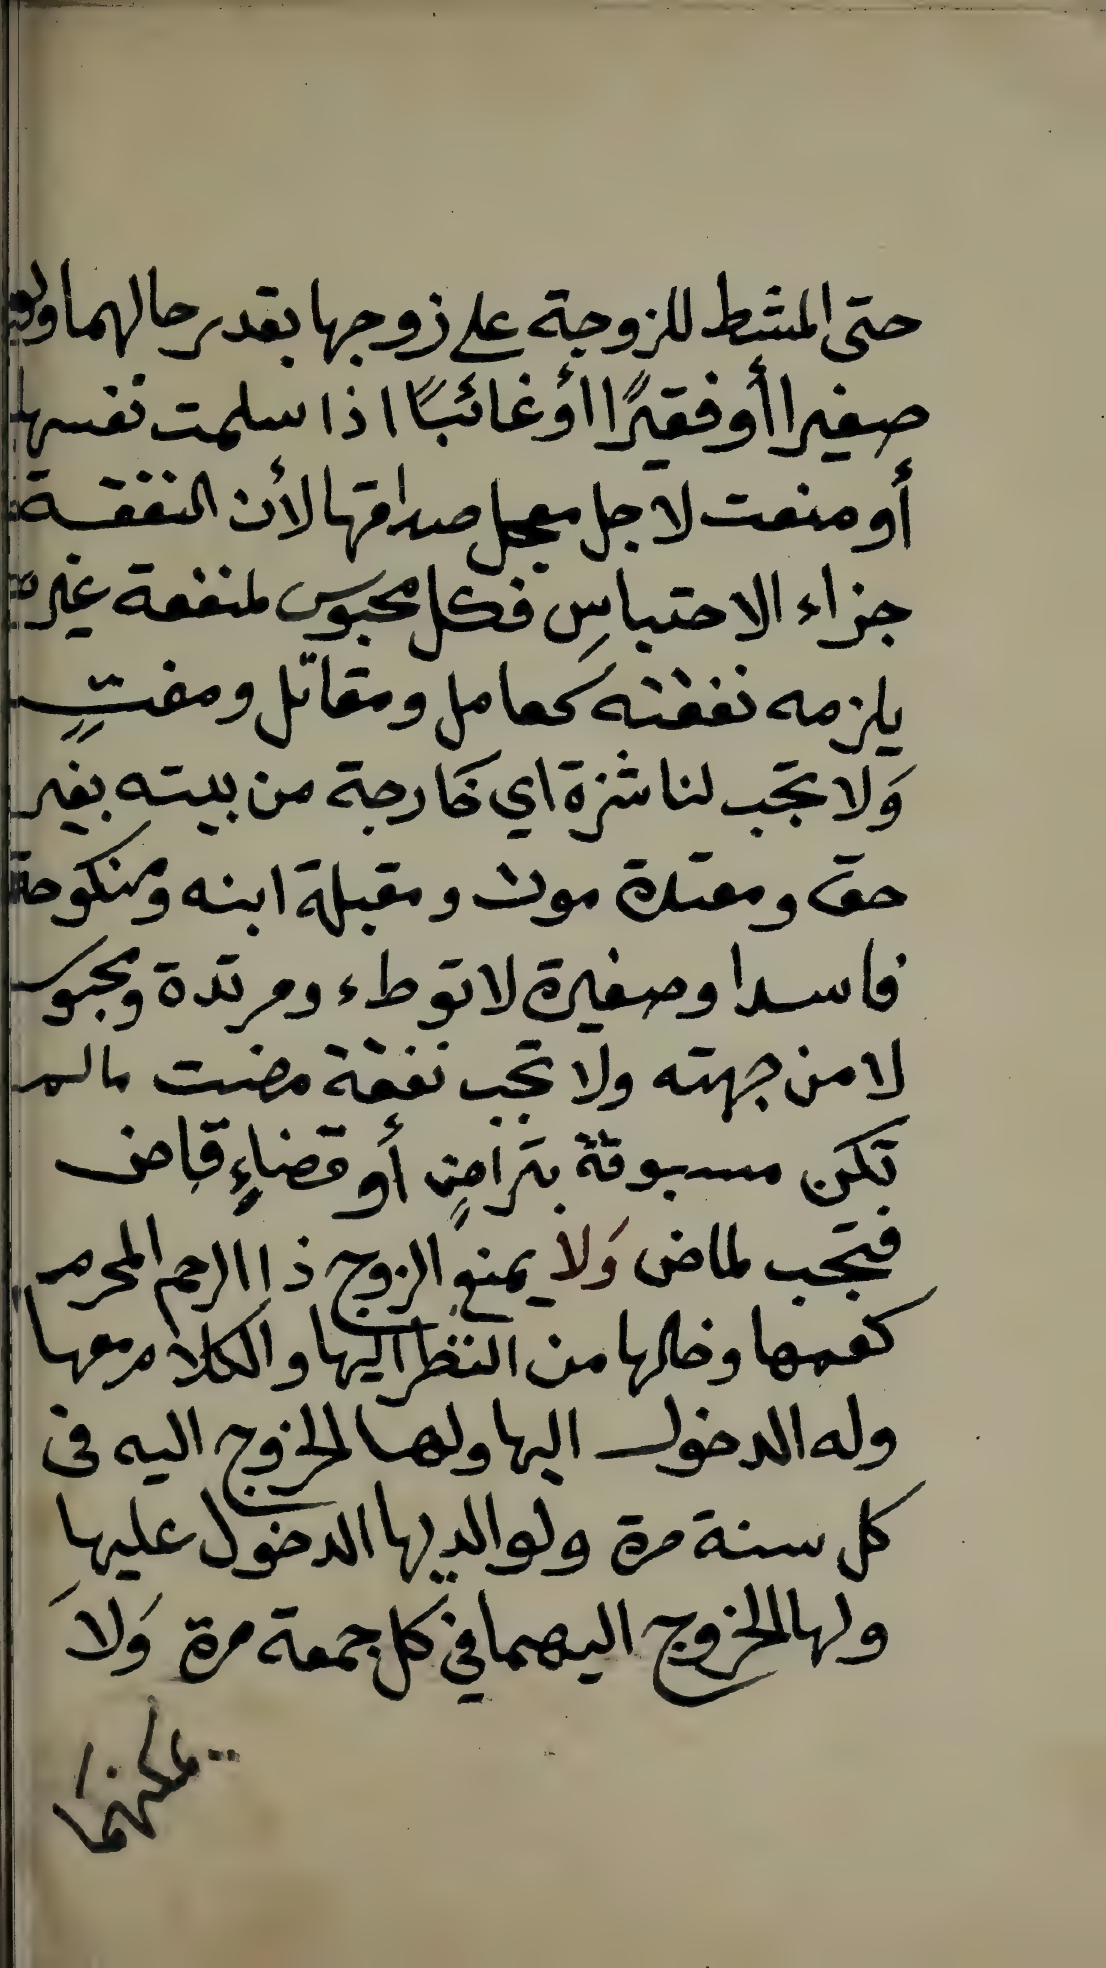 حتى المشط للزوجة على زوجها بقدر حالهما ولو
صغيرا أو فقيرًا أو غائبًا اذا سلمت نفسها
أو منعت لاجل معجل صداقها لأن النفقة
جزاء الاحتباسِ فكل محبوس لمنفعة غيره
يلزمه نفقته كعامل ومقاتل ومفتٍ
وَلا تجب لناشزة اي خارجة من بيته بغير
حق ومعتدة موت ومقبلة ابنه ومنكوحة
فاسدا وصغيرة لا توطء ومرتدة ومحبوسة
لا من جهته ولا تجب نفقة مضت مالم
تكن مسبوقة بتراضٍ أو قضاءٍ قاض
فتجب لماض وَلا يمنع الزوج ذا الرحم المحرم
كعمها وخالها من النظر اليها والكلام معها
وله الدخول اليها ولها الخروج اليه فى
كل سنة مرة ولوالديها الدخول عليها
ولها الخروج اليهما في كل جمعة مرة وَلاَ
يمكنهما